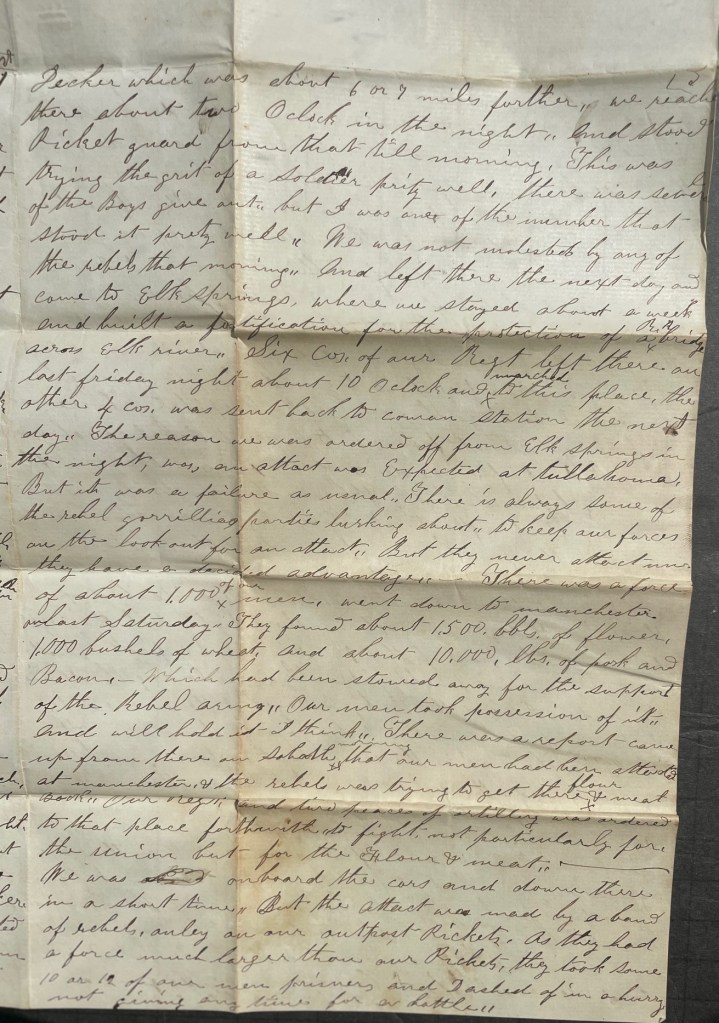 Decker which was about 6 or 7 miles further,, we reach
there about two Oclock in the night,, And stood
Picket guard from that till morning. This was
trying the grit of a soldier prity well, there was sever
of the Boys give out,, but I was one of the number that
stood it prety well,, We was not molested by any of
the rebels that morning,, And left there the next day and
come to Elk springs, where we stayed about a week
and built a fortification for the protection of a R.R. bridge
across Elk river,, Six Cos. of our Regt left there on
last friday night about 10 Oclock and marched to this place, the
other 4 cos. was sent back to cowan station the next
day,, The reason we was ordered off from Elk springs in
the night, was, an attact was Expected at tullahoma.
But it was a failure as usual,, There is always some of
the rebel gorrillias parties lurking about,, to keep our forces
on the look out for an attact,, But they never attact un-
they have a decided advantage,, — There was a force
of about 1.000 of our men, went down to manchester
on last Saturday. They found about 1,500. bbls. of flower,
1,000 bushels of wheat, and about 10,000, lbs. of pork and
Bacon,— Which had been stowed away for the support
of the Rebel army,, Our men took possession of it,,
And will hold it I think,, There was a report came
up from there on Saboth, that our men had been attacted
at manchester, & the rebels was trying to get there flour & meat
Back,, Our Regt, and two peaces of artillery was ordered
to that place forthwith, to fight, not particularly for,
the union but for the Flour & meat,,
We was onboard the cars and down there
in a short time,, But the attact was mad by a band
of rebels, onley on our outpost Pickets, As they had
a force much larger than our Pickets, they took some
10 or 12 of our men prisners and Dashed of in a hurry
not giving any time for a battle,,